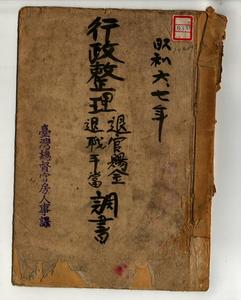 昭和六、七年
行政整理
退官賜金
退職手当
調書
臺灣總督官房人事課